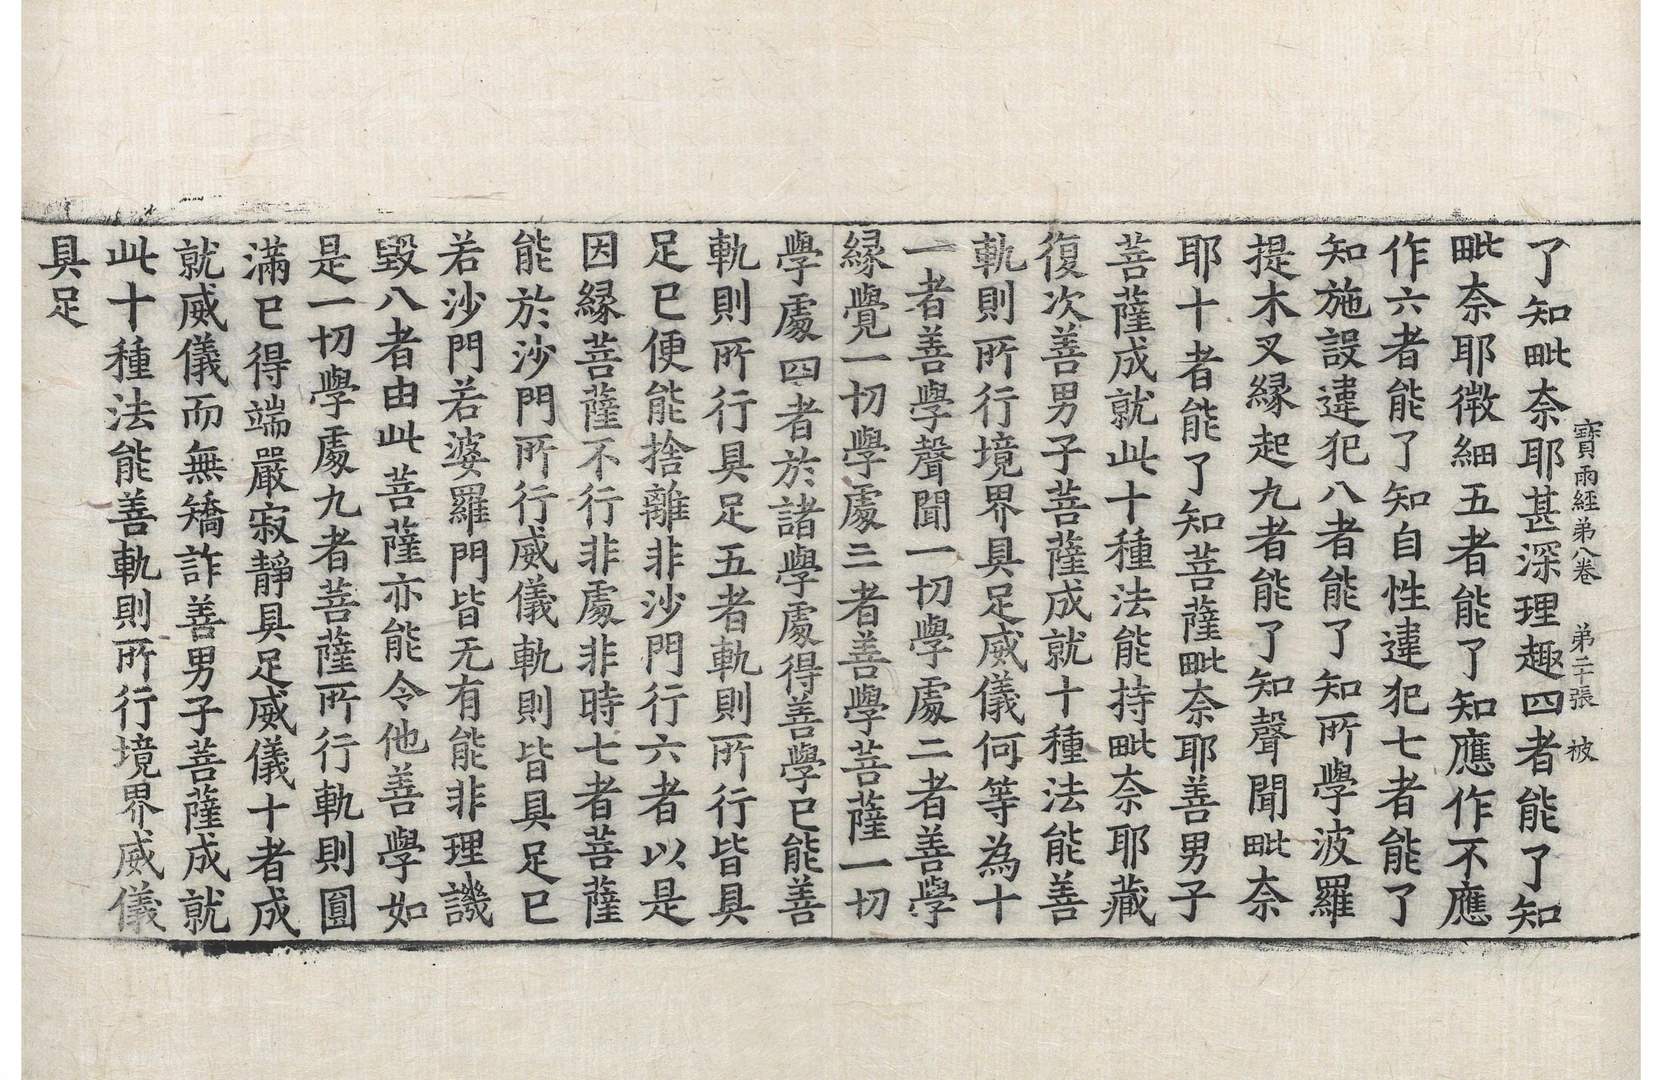 寶雨經苐八卷　苐二十張　被
了知毗奈耶甚深理趣四者能了知
毗奈耶微細五者能了知應作不應
作六者能了知自性違犯七者能了
知施設違犯八者能了知所學波羅
提木叉緣起九者能了知聲聞毗奈
耶十者能了知菩薩毗奈耶善男子
菩薩成就此十種法能持毗奈耶藏
復次善男子菩薩成就十種法能善
軌則所行境界具足威儀何等為十
一者善學聲聞一切學處二者善學
緣覺一切學處三者善學菩薩一切
學處四者於諸學處得善學已能善
軌則所行具足五者軌則所行皆具
足已便能捨離非沙門行六者以是
因緣菩薩不行非處非時七者菩薩
能於沙門所行威儀軌則皆具足已
若沙門若婆羅門皆无有能非理譏
毀八者由此菩薩亦能令他善學如
是一切學處九者菩薩所行軌則圓
滿已得端嚴寂靜具足威儀十者成
就威儀而無矯詐善男子菩薩成就
此十種法能善軌則所行境界威儀
具足